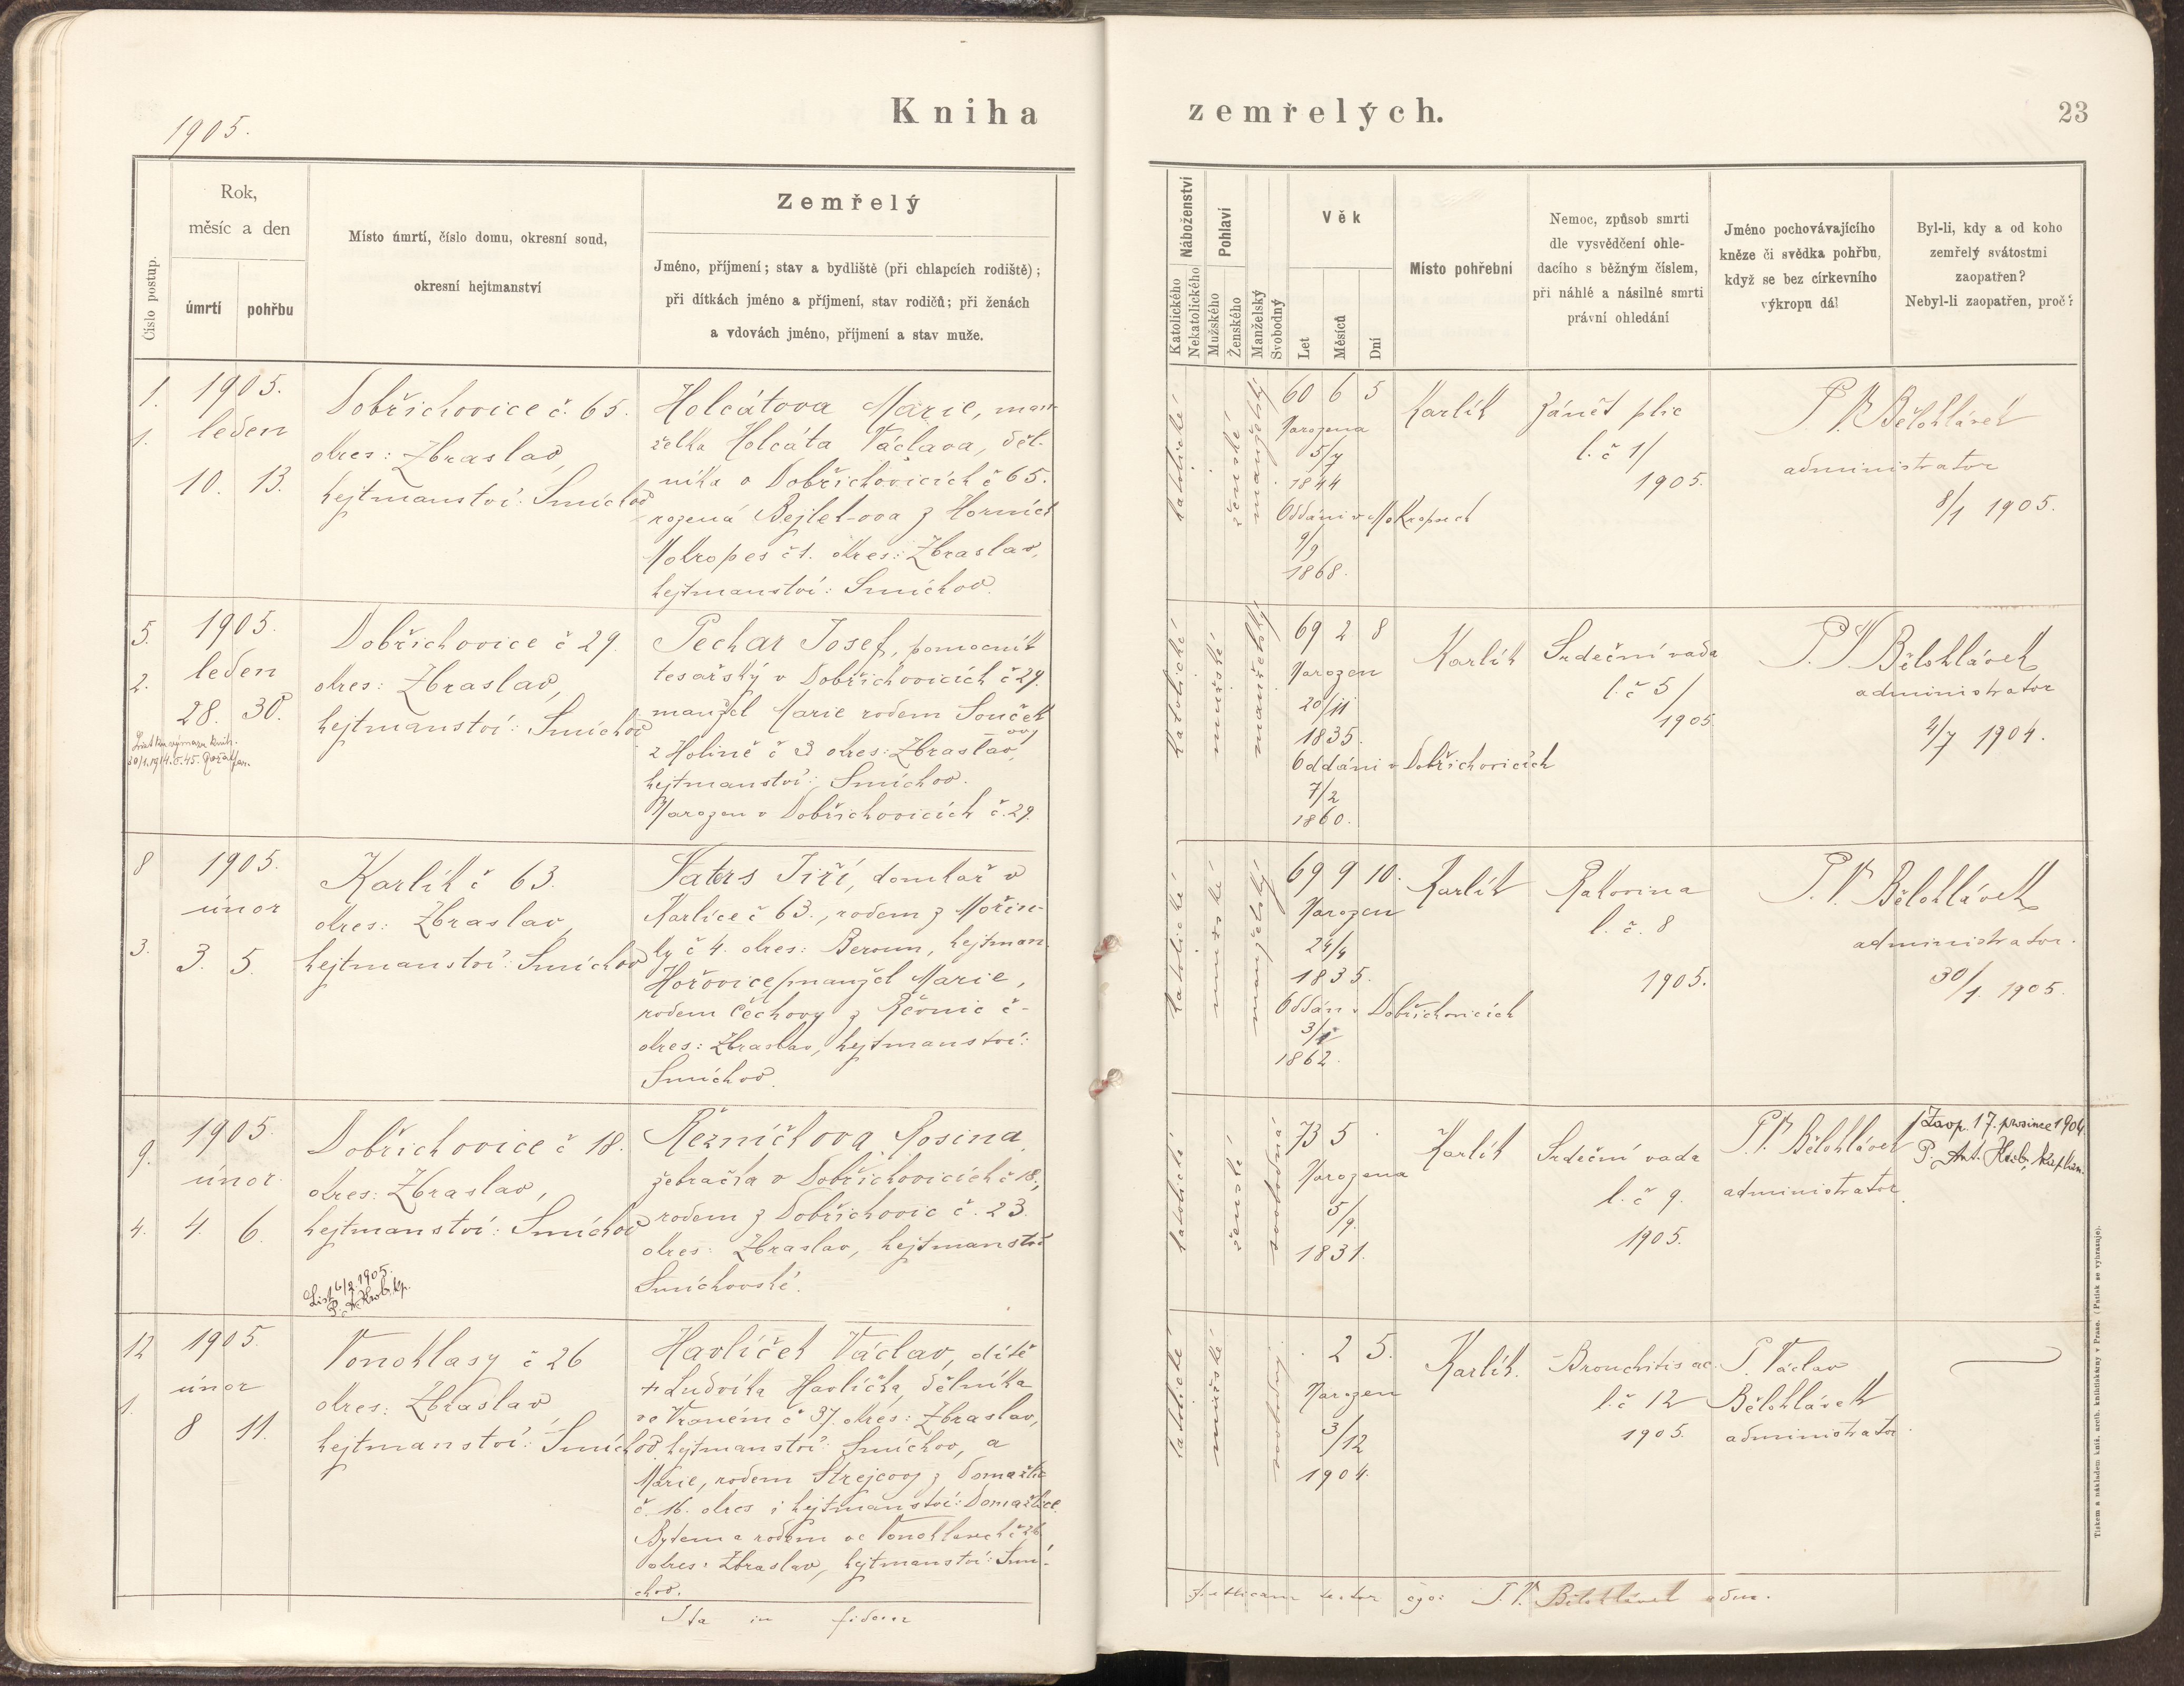 1905.
Kniha
zemřelých.
23
Číslo postup.
Rok,
měsíc a den
úmrtí
pohřbu
Místo úmrtí, číslo domu, okresní soud,
okresní hejtmanství
Zemřelý
Jméno, příjmení; stav a bydliště (při chlapcích rodiště);
při dítkách jméno a příjmení, stav rodičů; při ženách
a vdovách jméno, příjmení a stav muže.
Náboženství
Katolického
Nekatolického
Pohlaví
Mužského
Ženského
Manželský
Svobodný
Věk
Let
Měsíců
Dní
Místo pohřební
Nemoc, způsob smrti
dle vysvědčení ohle-
dacího s běžným číslem,
při náhlé a násilné smrti
právní ohledání
Jméno pochovávajícího
kněze či svědka pohřbu,
když se bez církevního
výkropu dál
Byl-li, kdy a od koho
zemřelý svátostmi
zaopatřen?
Nebyl-li zaopatřen, proč?
1.
1.
1905.
leden
10. 13.
Dobřichovice č. 65.
okres: Zbraslav,
hejtmanství: Smíchov
Holcátova Marie, man-
želka Holcáta Václava, děl-
níka v Dobřichovicích č 65.
rozená Bejlek-ova z Horních
Mokropes č 1. okres: Zbraslav,
hejtmanství: Smíchov.
katolické
ženské
manželský
60 6 5
Narozena
5/7
1844
Oddáni v Mokropsech
9/9
1868.
Karlík
Zánět plic
l. č 1/
1905.
P. V. Bělohlávek
administrator
8/1 1905.
5.
2.
1905.
leden
28. 30.
Dobřichovice č 29.
okres: Zbraslav,
hejtmanství: Smíchov
Pechar Josef, pomocník
tesařský v Dobřichovicích č 29.
manžel Marie rodem Souček
ovy
z Holině č 3 okres: Zbraslav,
hejtmanství: Smíchov.
Narozen v Dobřichovicích č. 29.
katolické
mužské
manželský
69 2 8
Narozen
20/11
1835.
Oddáni v Dobřichovicích
7/2
1860.
Karlík
Srdeční vada
l. č 5/
1905
P. V. Bělohlávek
administrator
4/7 1904.
8
3.
1905.
únor
3. 5.
Karlík č 63.
okres: Zbraslav,
hejtmanství: Smíchov
Vaters Jiří, domkař v
Karlíce č 63., rodem z Mořin-
ky č 4. okres: Beroun, hejtman.
Hořovice/manžel Marie,
rodem Čechovy z Řevnic č-
okres: Zbraslav, hejtmanství:
Smíchov.
katolické
mužské
manželský
69 9 10.
Narozen
24/4
1835.
Oddán v Dobřichovicích
1862.
Karlík
Rakovina
l. č. 8
1905.
P. V. Bělohlávek
administrator.
30/1. 1905.
9.
4.
1905
únor
4. 6.
Dobřichovice č 18.
okres: Zbraslav,
hejtmanství: Smíchov
List 6/2 1905.
P. A. Hrob, kp.
Řezníčkova Rosina
žebračka v Dobřichovicích č 18.,
rodem z Dobřichovic č. 23.
okres: Zbraslav, hejtmanství
Smíchovské.
katolické
ženské
svobodná
73 5
Narozena
5/9.
1831.
Karlík
Srdeční vada
l. č 9.
1905.
P. V. Bělohlávek
administrator.
Zaop. 17. prosince 1904
P. Ant. Hrob, kaplan.
12
1.
1905.
únor
8 11.
Vonoklasy č 26
okres: Zbraslav
hejtmanství: Smíchov
Havlíček Václav, dítě
+ Ludvíka Havlíčka, dělníka
ve Vraném č 37. okres: Zbraslav,
hejtmanství: Smíchov, a
Marie, rodem Strejcovy z Domažlic
č. 16. okres i hejtmanství: Domažlice.
Bytem a rodem ve Vonoklasech č 26
okres: Zbraslav, hejtmanství: Smí-
chov.
katolické
mužské
svobodný
2 5.
Narozen
3/12
1904.
Karlík.
Bronchitis ac.
l. č 12
1905.
P. Václav
Bělohlávek
administrator.
Ita in fidem
ego: P. V. Bělohlávek adm.
Tiskem a nákladem kníž. arcib. knihtiskárny v Praze. (Patisk se vyhrazuje).